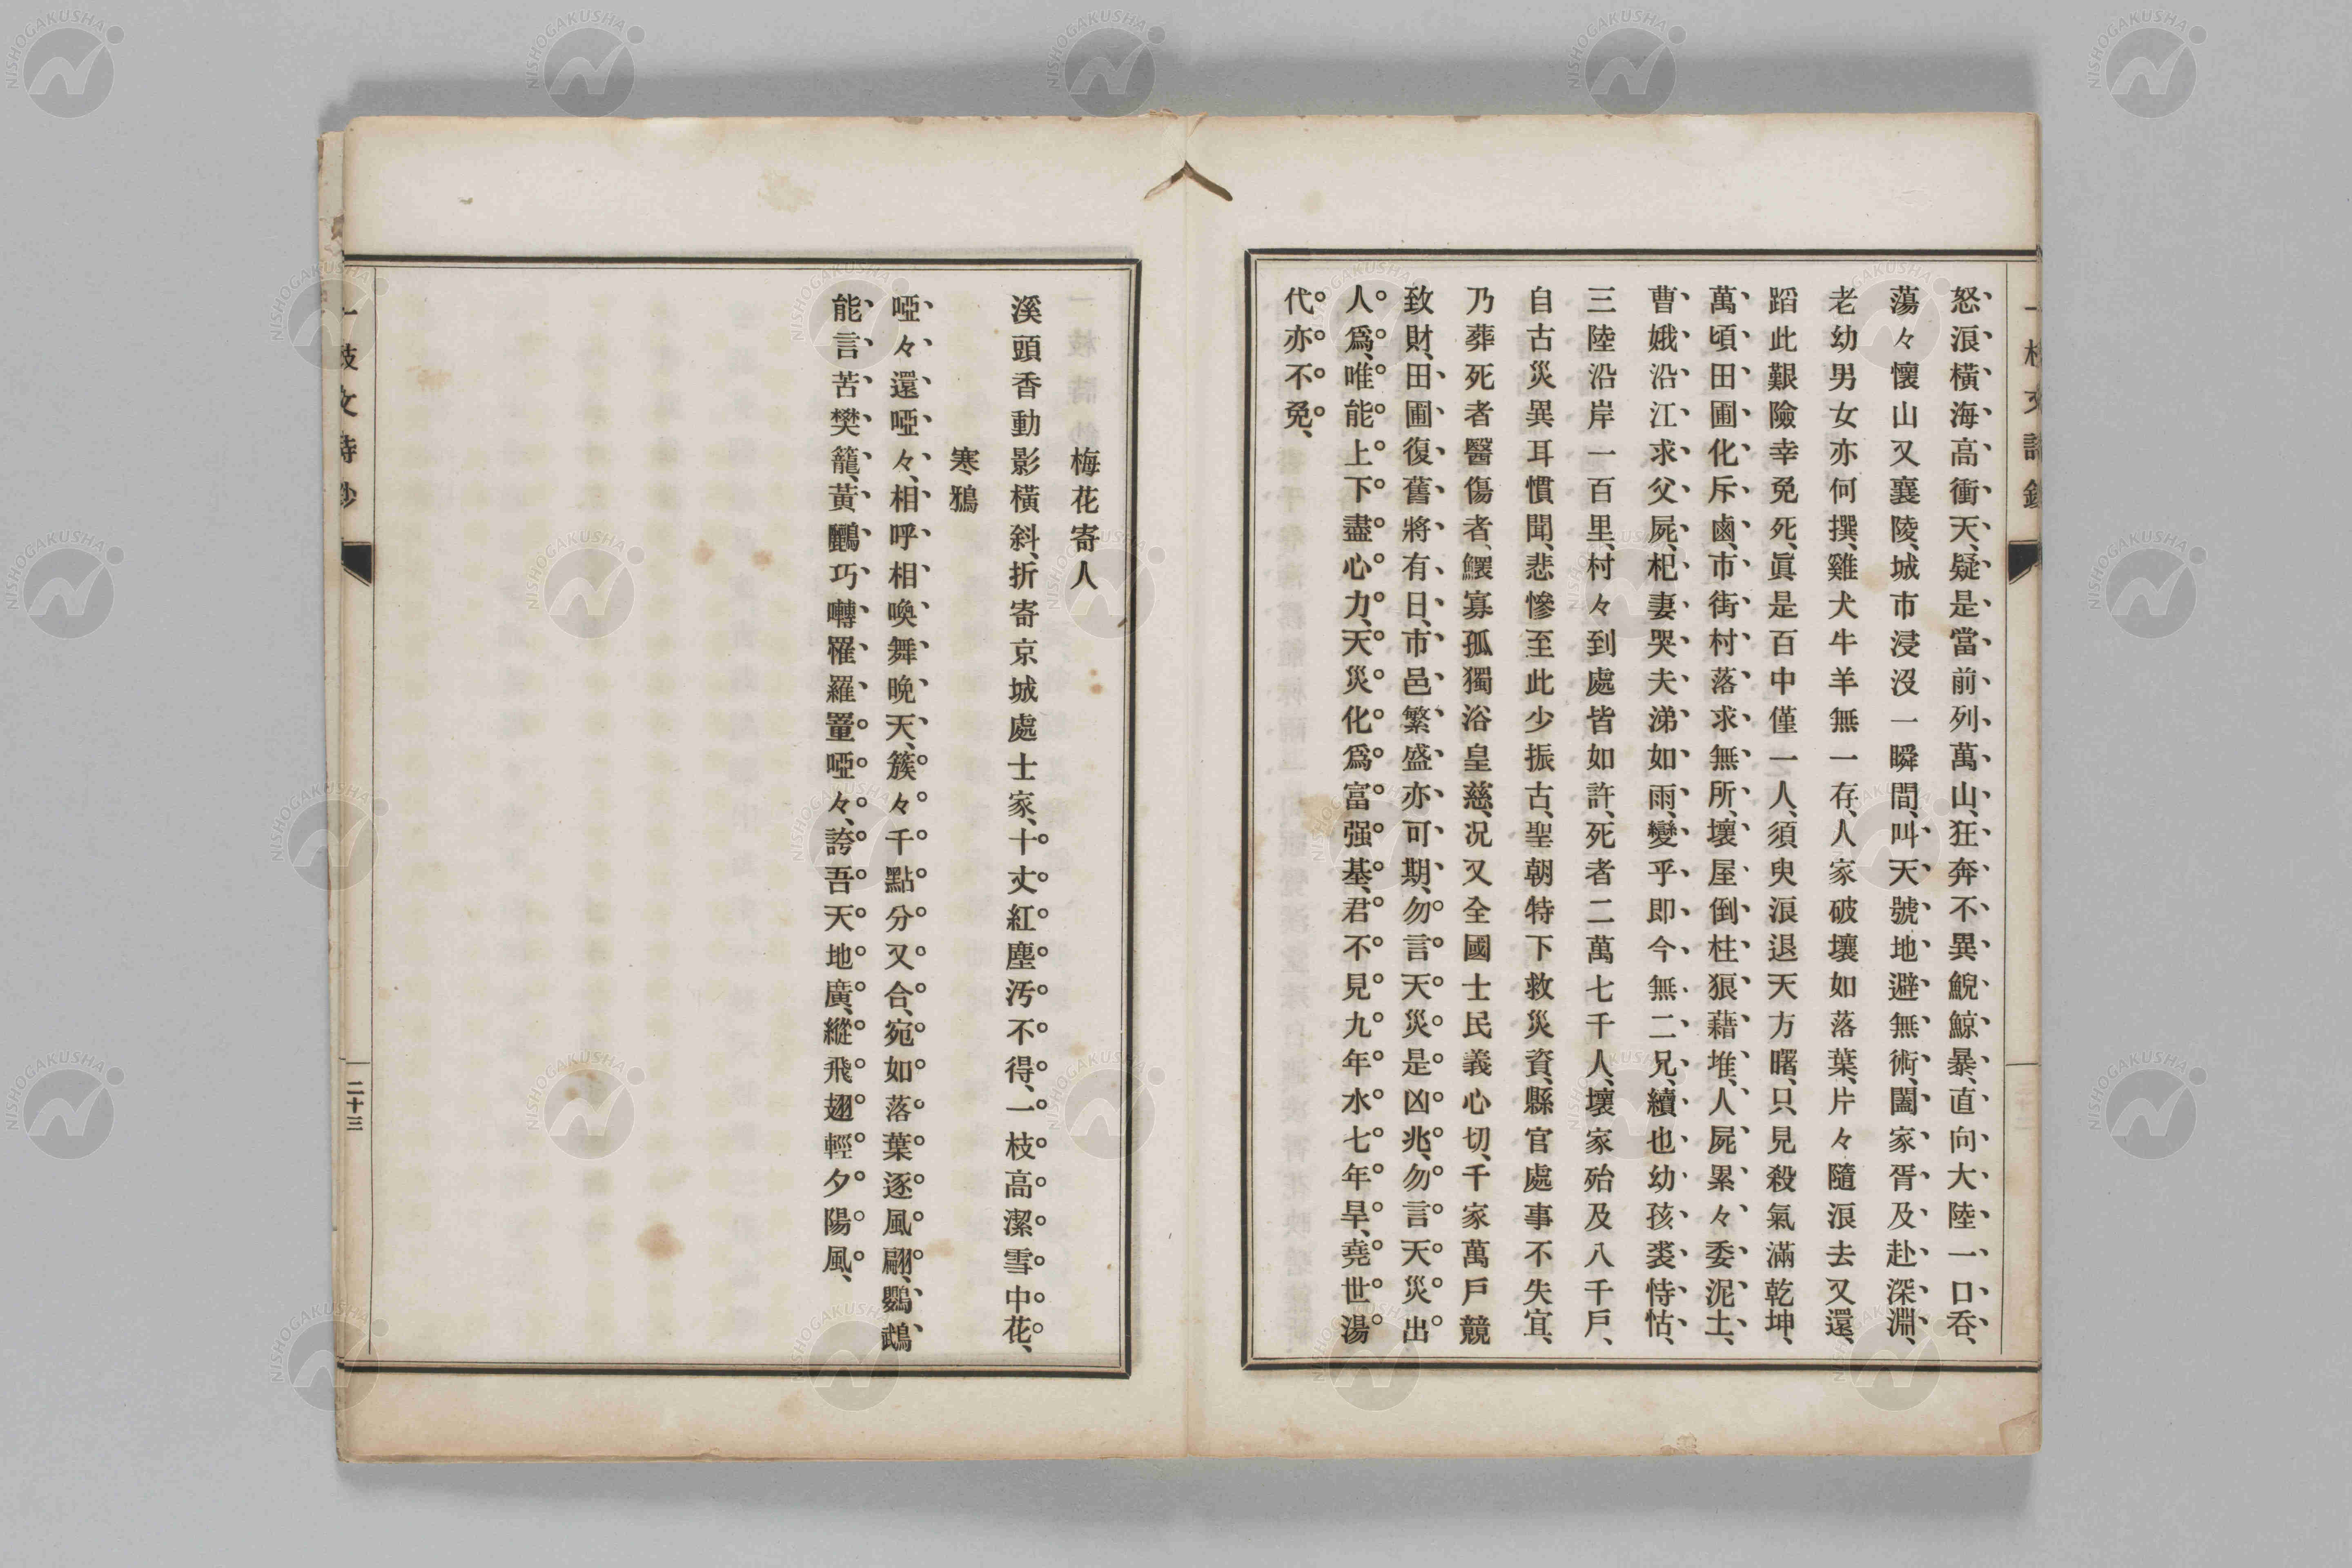 怒浪橫海高衝天、疑是當前列萬山、狂奔不異鯢鯨暴、直向大陸一口呑、
蕩々懷山又襄陵、城市浸沒一瞬間、叫天號地避無術、闔家胥及赴深淵、
老幼男女亦何撰、雞犬牛羊無一存、人家破壞如落葉、片々隨浪去又還、
蹈此艱險幸免死、眞是百中僅一人、須臾浪退天方曙、只見殺氣滿乾坤、
萬頃田圃化斥鹵、市街村落求無所、壞屋倒柱狼藉堆、人屍累々委泥土、
曹娥沿江求父屍、杞妻哭夫涕如雨、變乎即今無二兄、續也幼孩裘恃怙、
三陸沿岸一百里、村々到處皆如許、死者二萬七千人、壞家殆及八千戶、
自古災異耳慣聞、悲慘至此少振古、聖朝特下救災資、縣官處事不失宜、
乃葬死者醫傷者、鰥寡孤獨浴皇慈、况又全國士民義心切、千家萬戶競
致財、田圃復舊將有日、市邑繁盛亦可期、勿言天災是凶兆、勿言天災出
人爲、唯能上下盡心力、天災化爲富强基、君不見九年水七年旱、堯世湯
代亦不免、
梅花寄人
溪頭香動影橫斜、折寄京城處士家、十丈紅塵汚不得、一枝高潔雪中花、
寒鴉
啞々還啞々、相呼相喚舞晩天、簇々千點分又合、宛如落葉逐風翩、鸚鵡
能言苦樊籠、黃鸝巧囀罹羅罿。啞々、誇吾天地廣、縱飛翅輕夕陽風、
一枝文詩鈔
二十三
NISHOGAKUSHA